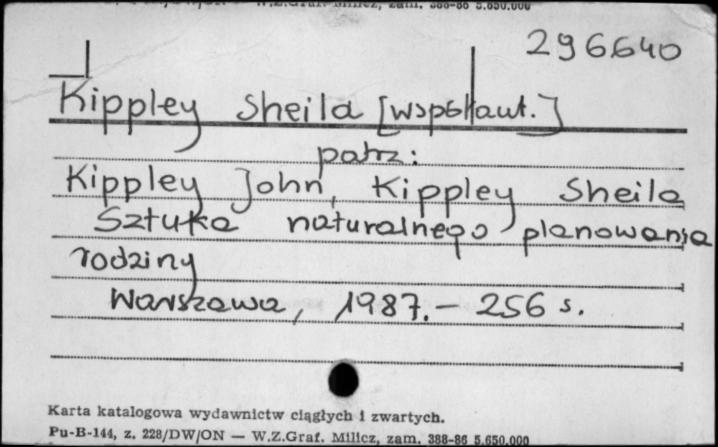 W.Z.Graf. Milicz, zam. 388-86 5.650.000
296640
Kippley Sheila [współaut.]
patrz:
Kippley John, Kippley Sheila
Sztuka naturalnego planowania
rodziny
Warszawa, 1987. — 256 s.
Karta katalogowa wydawnictw ciągłych i zwartych.
Pu-B-144, z. 228/DW/ON — W.Z.Graf. Milicz, zam. 388-86 5.650.000